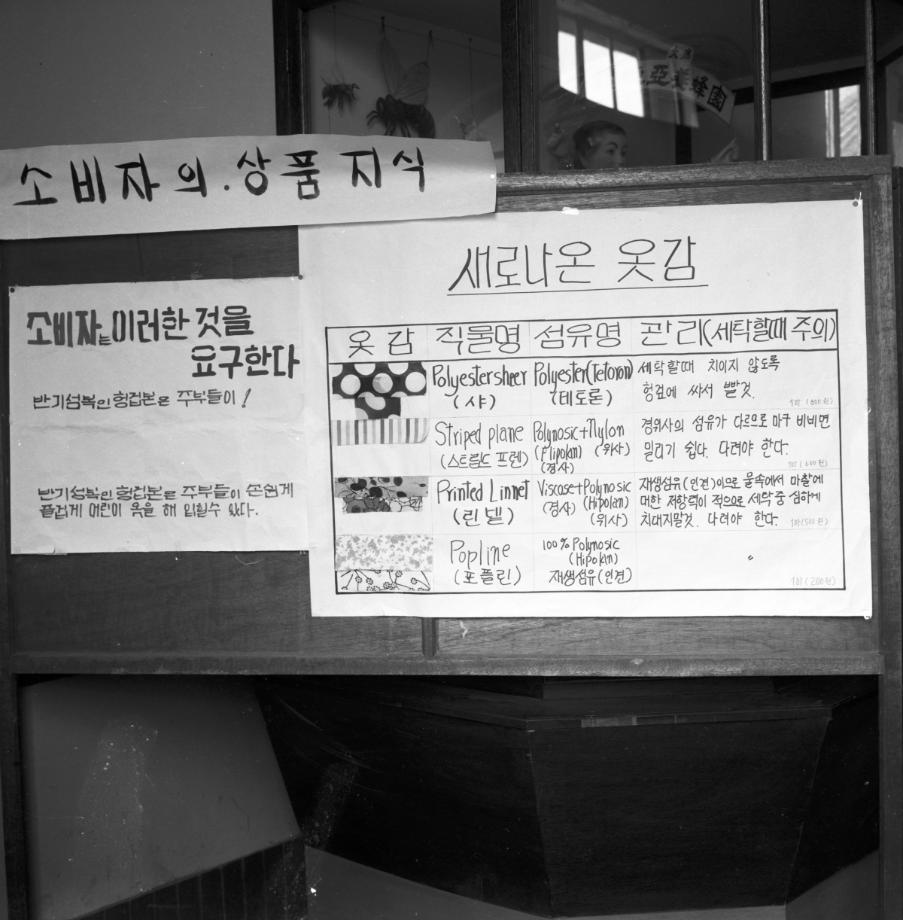 소비자의·상품 지식
소비자는 이러한 것을
요구한다
반기성복인 헝겁본은 주부들이!
반기성복인 헝겁본은 주부들이 손쉽게
즐겁게 어린이 옷을 해 입힐수 있다.
새로나온 옷감
옷감 직물명 섬유명 관리(세탁할때 주의)
Polyester sheer
(샤)
Polyester(Tetoron)
(테토론)
세탁할때 치이지 않도록
헝겊에 싸서 빨것.
Striped plane
(스트립드 프렌)
Polynosic+Nylon
(Hipolan) (위사)
(경사)
경위사의 섬유가 다르므로 마구 비비면
밀리기 쉽다. 다려야 한다.
Printed Linnet
(린넬)
Viscose+Polynosic
(경사) (Hipolan)
(위사)
재생섬유(인견)이므로 물속에서 마찰에
대한 저항력이 적으로 세탁중 심하게
치대지말것. 다려야 한다.
Popline
(포플린)
100% Polynosic
(Hipolan)
재생섬유(인견)
〃
亞養蜂園